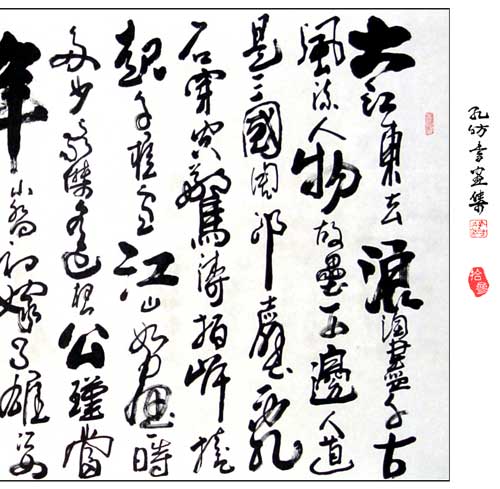 大江東去浪淘盡千古
風流人物故壘西邊人道
是三國周郎赤壁亂
石穿空驚濤拍岸捲
起千堆雪江山如畫一時
多少豪傑遙想公瑾當
年小喬初嫁了雄姿
孔仿書畫集